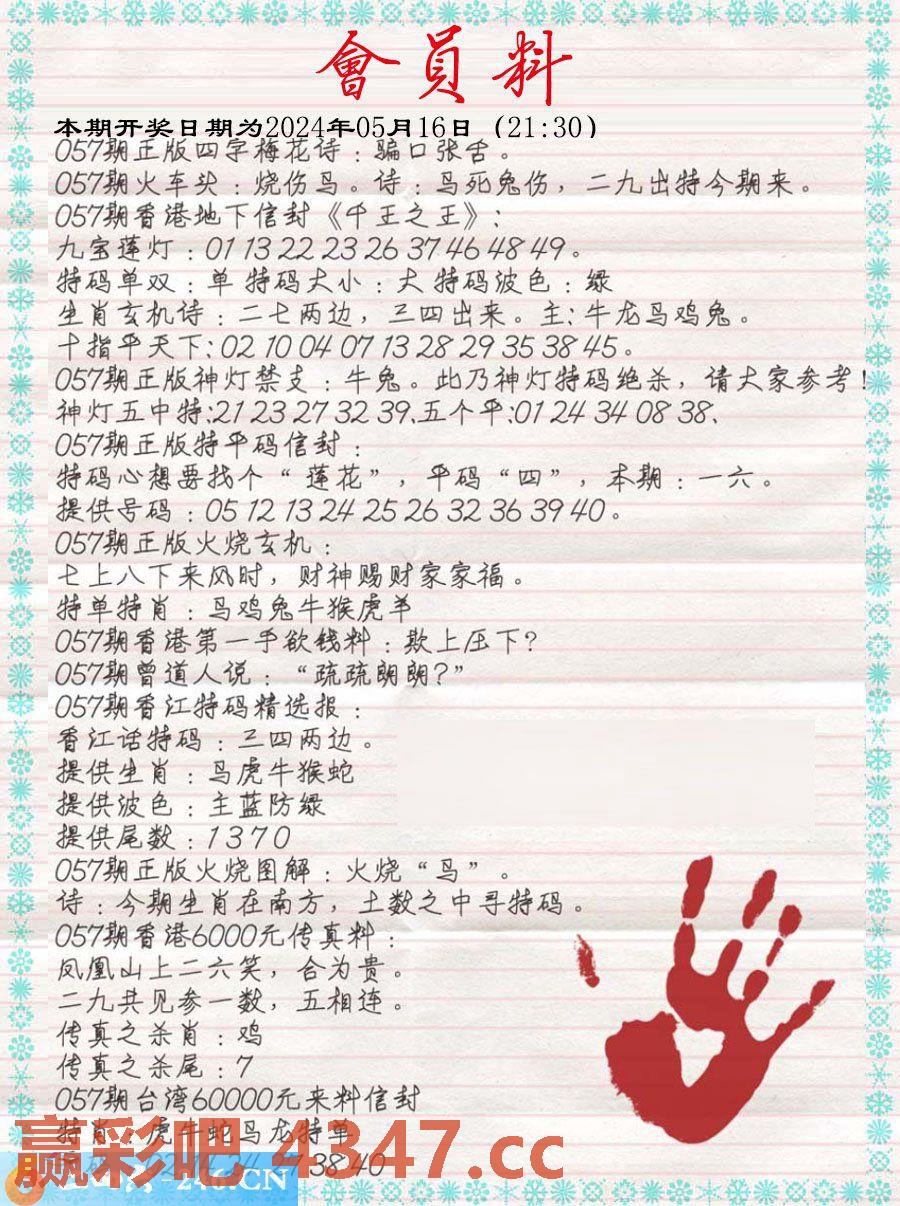 會員料
本期开奖日期为2024年05月16日（21:30）
057期正版四字梅花诗：骗口张舌。
057期火车头：烧伤鸟。诗：鸟死兔伤，二九出特今期来。
057期香港地下信封《千王之王》：
九宝莲灯：01 13 22 23 26 37 46 48 49。
特码单双：单 特码大小：大 特码波色：绿
生肖玄机诗：二七两边，三四出来。主：牛龙鸟鸡兔。
十指平天下：02 10 04 07 13 28 29 35 38 45。
057期正版神灯禁支：牛兔。此乃神灯特码绝杀，请大家参考！
神灯五中特：21 23 27 32 39.五个平：01 24 34 08 38.
057期正版特平码信封：
特码心想要找个“莲花”，平码“四”，本期：一六。
提供号码：05 12 13 24 25 26 32 36 39 40。
057期正版火烧玄机：
七上八下来风时，财神赐财家家福。
特单特肖：鸟鸡兔牛猴虎羊
057期香港第一手欲钱料：欺上压下？
057期曾道人说：“疏疏朗朗？”
057期香江特码精选报：
香江话特码：三四两边。
提供生肖：鸟虎牛猴蛇
提供波色：主蓝防绿
提供尾数：1 3 7 0
057期正版火烧图解：火烧“鸟”。
诗：今期生肖在南方，土数之中寻特码。
057期香港6000元传真料：
凤凰山上二六笑，合为贵。
二九共见参一数，五相连。
传真之杀肖：鸡
传真之杀尾：7
057期台湾60000元来料信封
特肖：虎牛蛇鸟龙特单
38 40
赢彩吧4347.cc
246.CN